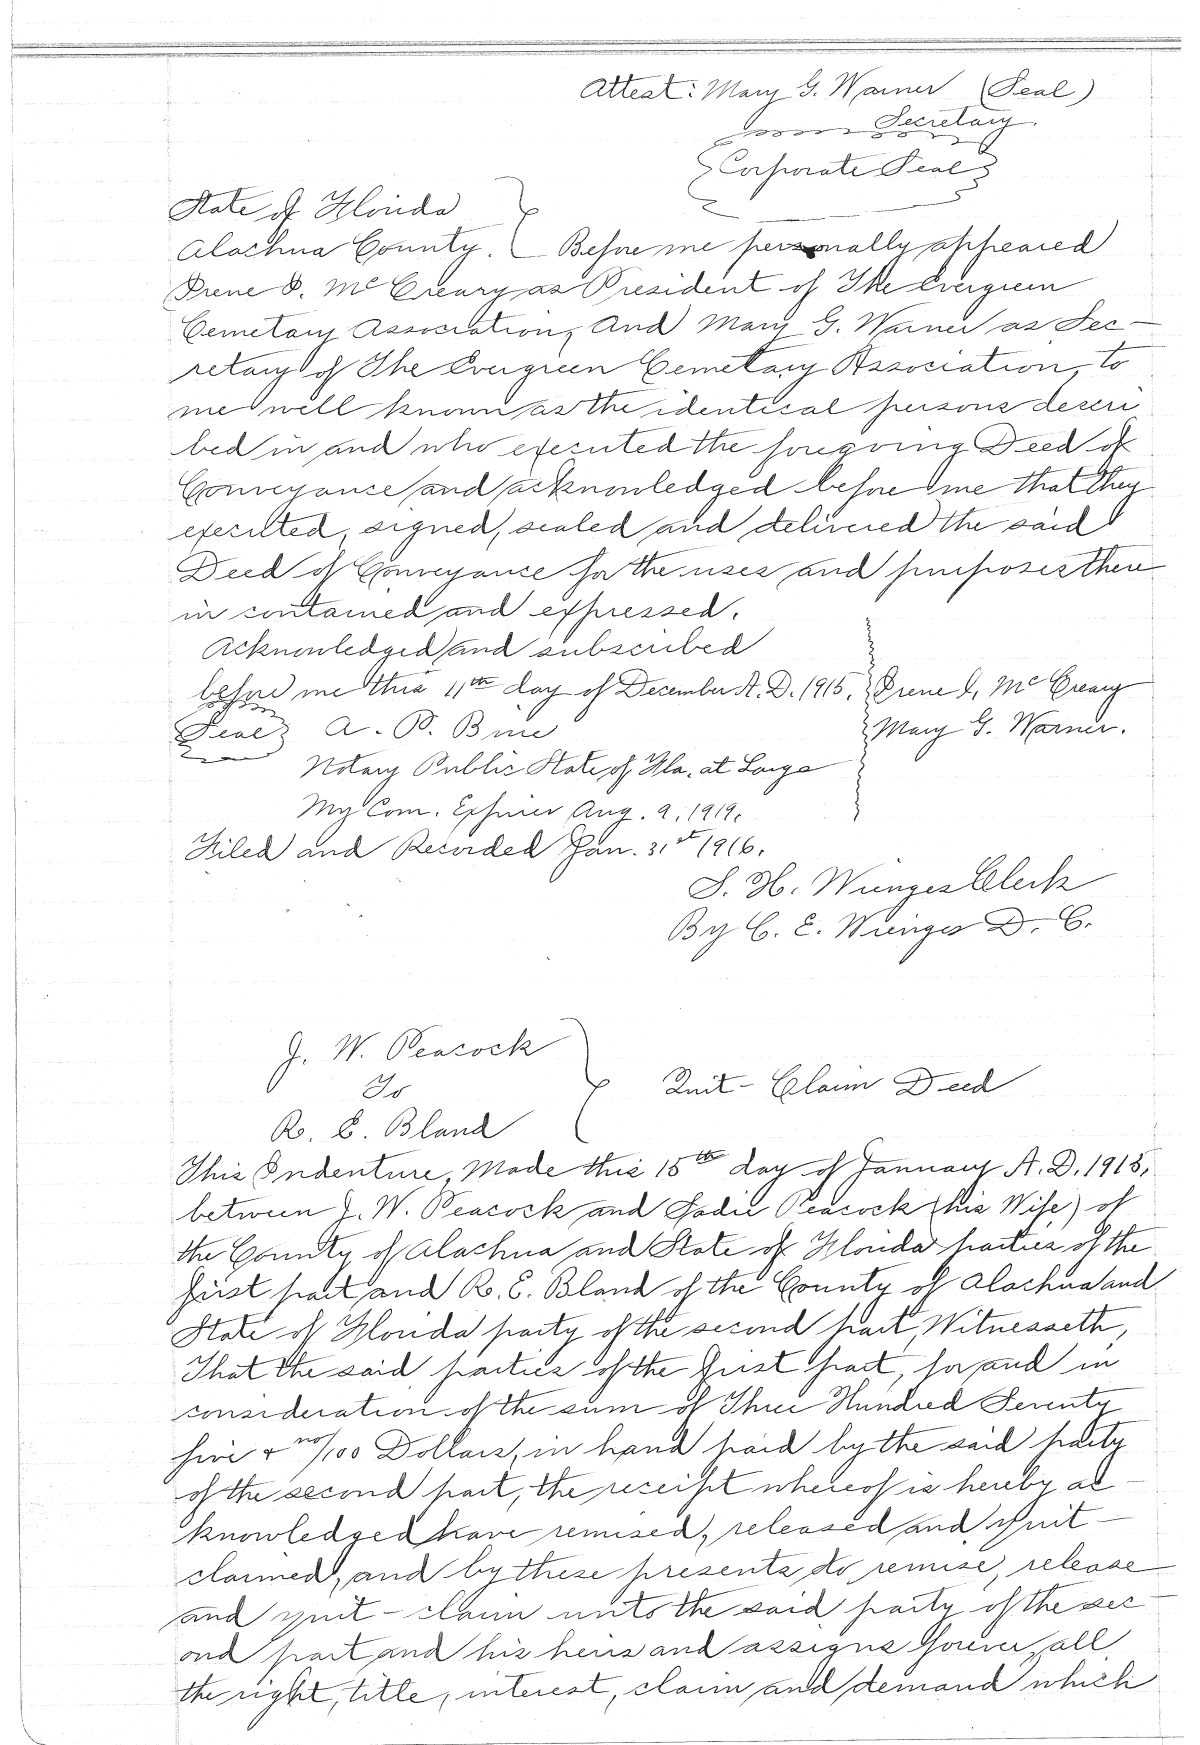 Attest: Mary G. Warner (Seal)
Secretary.
Corporate Seal
State of Florida
Alachua County. Before me personally appeared
Irene I. McCreary as President of The Evergreen
Cemetary Association, And Mary G. Warner as Sec-
retary of The Evergreen Cemetary Association, to
me well known as the identical persons descri
bed in and who executed the foregoing Deed of
Conveyance and acknowledged before me that they
executed, signed, sealed and delivered the said
Deed of Conveyance for the uses and purposes there
in contained and expressed.
Acknowledged and subscribed
before me this 11th day of December A. D. 1915. Irene I. McCreary
Seal A. P. Mary G. Warner.
Notary Public State of Fla. at Large
My Com. Expires Aug. 9, 1919.
Filed and Recorded Jan. 31st 1916.
S. H. Wienges Clerk
By C. E. Wienges D. C.
J. W. Peacock
To
Quit-Claim Deed
R. E. Bland
This Indenture, Made this 15th day of January A. D. 1915,
between J. W. Peacock and Sadie Peacock (his Wife) of
the County of Alachua and State of Florida parties of the
first part and R. E. Bland of the County of Alachua and
State of Florida party of the second part, Witnesseth,
That the said parties of the first part, for and in
consideration of the sum of Three Hundred Seventy
five + no/100 Dollars, in hand paid by the said party
of the second part, the receipt whereof is hereby ac-
knowledged have remised, released and quit-
claimed, and by these presents do remise, release
and quit-claim unto the said party of the sec-
ond part and his heirs and assigns forever, all
the right, title, interest, claim and demand which